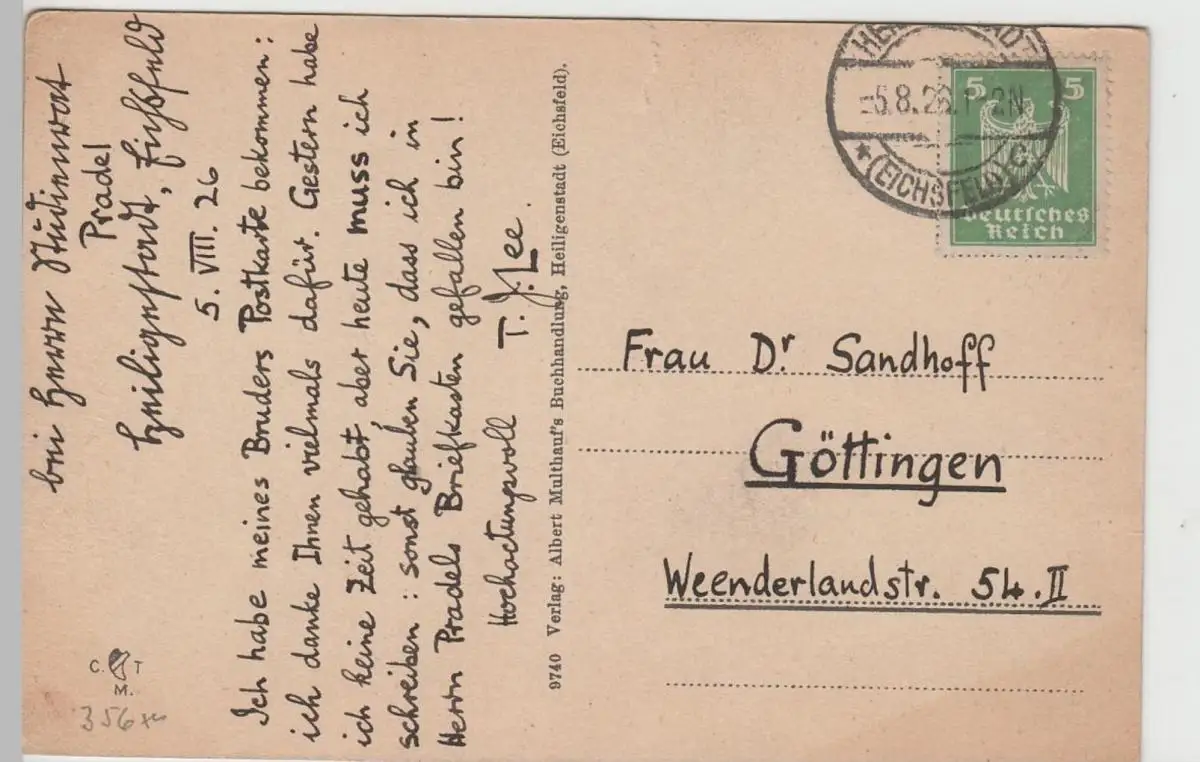 bei Herrn Studienrat
Pradel
Heiligenstadt, Eichsfeld
5. VIII. 26
Ich habe meines Bruders Postkarte bekommen:
ich danke Ihnen vielmals dafür. Gestern habe
ich keine Zeit gehabt, aber heute muss ich
schreiben: sonst glauben Sie, dass ich in
Herrn Pradels Briefkasten gefallen bin!
Hochachtungsvoll T. J. Lee.
9740 Verlag: Albert Multhauf's Buchhandlung, Heiligenstadt (Eichsfeld).
C. T
M.
356
-5.8.26.1-2N
* (EICHSFELD) C
5 5
Deutsches
Reich
Frau Dr Sandhoff
Göttingen
Weenderlandstr. 54. II